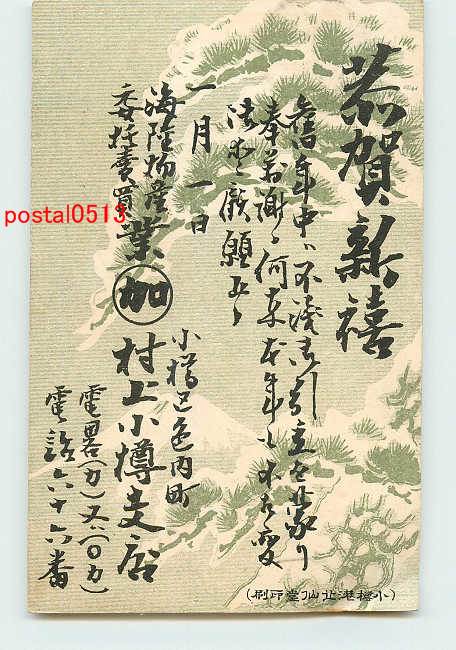 恭賀新禧
舊年中ハ不淺御引立を蒙り
奉萬謝候何卒本年も不相変
御愛顧願上候
一月一日
海陸物産
委托賣買業
加
小樽區色内町
村上小樽支店
電畧(カ)又ハ(〇カ)
電話六十六番
(小樽港北仙堂印刷)
postal0513